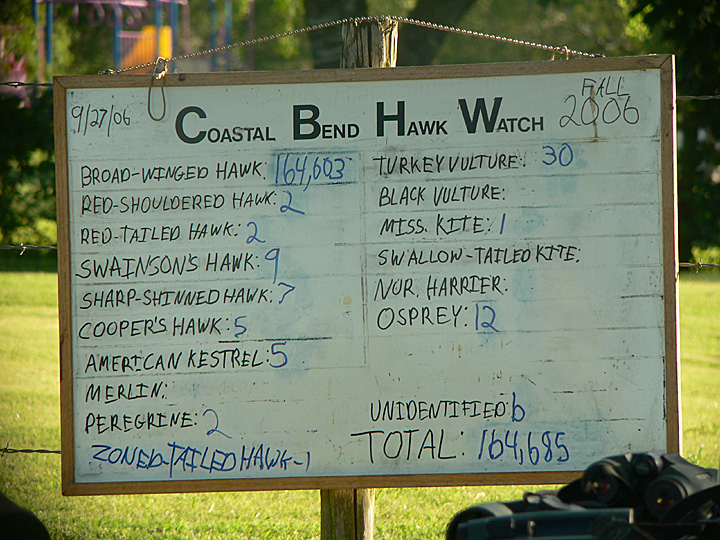 9/27/06
COASTAL BEND HAWK WATCH
FALL
2006
BROAD-WINGED HAWK: 164,603
RED-SHOULDERED HAWK: 2
RED-TAILED HAWK: 2
SWAINSON'S HAWK: 9
SHARP-SHINNED HAWK: 7
COOPER'S HAWK: 5
AMERICAN KESTREL: 5
MERLIN:
PEREGRINE: 2
ZONED-TAILED HAWK-1
TURKEY VULTURE: 30
BLACK VULTURE:
MISS. KITE: 1
SWALLOW-TAILED KITE:
NOR. HARRIER:
OSPREY: 12
UNIDENTIFIED: 6
TOTAL: 164,685